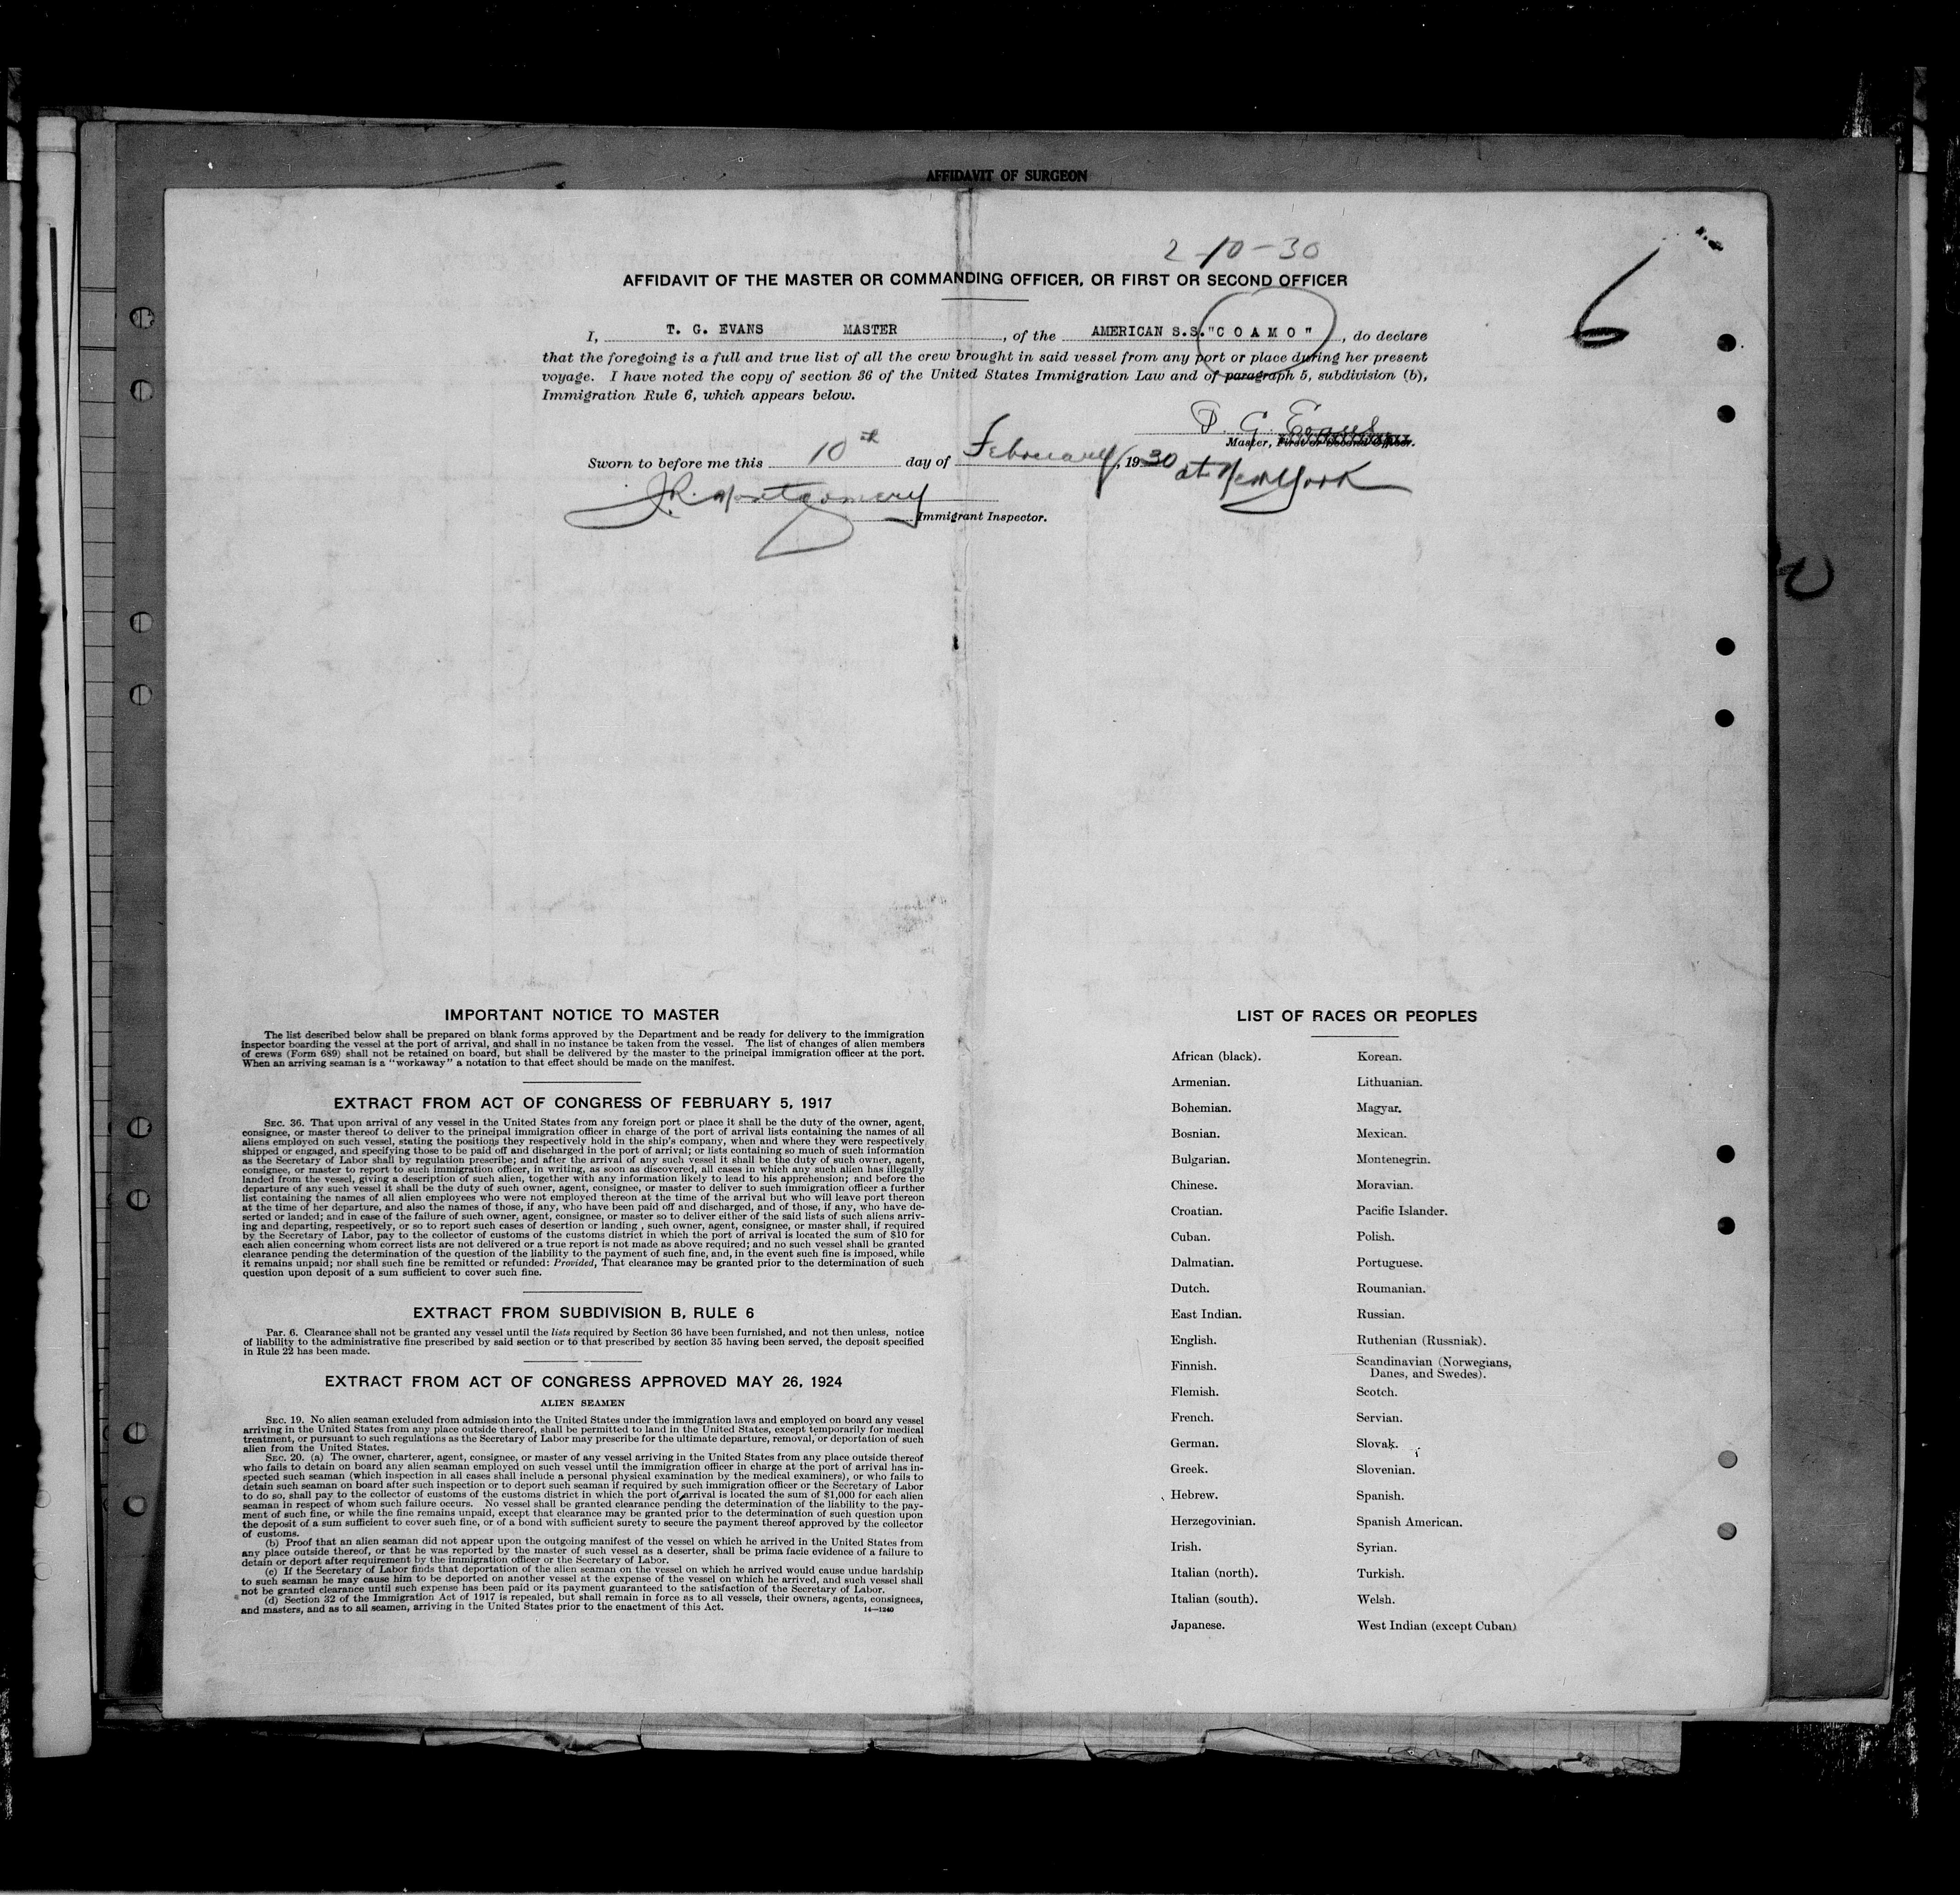 AFFIDAVIT OF SURGEON
2-10-30
6
AFFIDAVIT OF THE MASTER OR COMMANDING OFFICER, OR FIRST OR SECOND OFFICER
I, T. G. EVANS MASTER, of the AMERICAN S.S. "C O A M O", do declare
that the foregoing is a full and true list of all the crew brought in said vessel from any port or place during her present
voyage. I have noted the copy of section 36 of the United States Immigration Law and of paragraph 5, subdivision (b),
Immigration Rule 6, which appears below.
T. G. Evans
Master, First or Second Officer.
Sworn to before me this 10th day of February, 1930 at New York
J.R. Montgomery
Immigrant Inspector.
IMPORTANT NOTICE TO MASTER
The list described below shall be prepared on blank forms approved by the Department and be ready for delivery to the immigration
inspector boarding the vessel at the port of arrival, and shall in no instance be taken from the vessel. The list of changes of alien members
of crews (Form 689) shall not be retained on board, but shall be delivered by the master to the principal immigration officer at the port.
When an arriving seaman is a "workaway" a notation to that effect should be made on the manifest.
EXTRACT FROM ACT OF CONGRESS OF FEBRUARY 5, 1917
SEC. 36. That upon arrival of any vessel in the United States from any foreign port or place it shall be the duty of the owner, agent,
consignee, or master thereof to deliver to the principal immigration officer in charge of the port of arrival lists containing the names of all
aliens employed on such vessel, stating the positions they respectively hold in the ship's company, when and where they were respectively
shipped or engaged, and specifying those to be paid off and discharged in the port of arrival; or lists containing so much of such information
as the Secretary of Labor shall by regulation prescribe; and after the arrival of any such vessel it shall be the duty of such owner, agent,
consignee, or master to report to such immigration officer, in writing, as soon as discovered, all cases in which any such alien has illegally
landed from the vessel, giving a description of such alien, together with any information likely to lead to his apprehension; and before the
departure of any such vessel it shall be the duty of such owner, agent, consignee, or master to deliver to such immigration officer a further
list containing the names of all alien employees who were not employed thereon at the time of the arrival but who will leave port thereon
at the time of her departure, and also the names of those, if any, who have been paid off and discharged, and of those, if any, who have de-
serted or landed; and in case of the failure of such owner, agent, consignee, or master so to deliver either of the said lists of such aliens arriv-
ing and departing, respectively, or so to report such cases of desertion or landing, such owner, agent, consignee, or master shall, if required
by the Secretary of Labor, pay to the collector of customs of the customs district in which the port of arrival is located the sum of $10 for
each alien concerning whom correct lists are not delivered or a true report is not made as above required; and no such vessel shall be granted
clearance pending the determination of the question of the liability to the payment of such fine, and, in the event such fine is imposed, while
it remains unpaid; nor shall such fine be remitted or refunded: Provided, That clearance may be granted prior to the determination of such
question upon deposit of a sum sufficient to cover such fine.
EXTRACT FROM SUBDIVISION B, RULE 6
Par. 6. Clearance shall not be granted any vessel until the lists required by Section 36 have been furnished, and not then unless, notice
of liability to the administrative fine prescribed by said section or to that prescribed by section 35 having been served, the deposit specified
in Rule 22 has been made.
EXTRACT FROM ACT OF CONGRESS APPROVED MAY 26, 1924
ALIEN SEAMEN
SEC. 19. No alien seaman excluded from admission into the United States under the immigration laws and employed on board any vessel
arriving in the United States from any place outside thereof, shall be permitted to land in the United States, except temporarily for medical
treatment, or pursuant to such regulations as the Secretary of Labor may prescribe for the ultimate departure, removal, or deportation of such
alien from the United States.
SEC. 20. (a) The owner, charterer, agent, consignee, or master of any vessel arriving in the United States from any place outside thereof
who fails to detain on board any alien seaman employed on such vessel until the immigration officer in charge at the port of arrival has in-
spected such seaman (which inspection in all cases shall include a personal physical examination by the medical examiners), or who fails to
detain such seaman on board after such inspection or to deport such seaman if required by such immigration officer or the Secretary of Labor
to do so, shall pay to the collector of customs of the customs district in which the port of arrival is located the sum of $1,000 for each alien
seaman in respect of whom such failure occurs. No vessel shall be granted clearance pending the determination of the liability to the pay-
ment of such fine, or while the fine remains unpaid, except that clearance may be granted prior to the determination of such question upon
the deposit of a sum sufficient to cover such fine, or of a bond with sufficient surety to secure the payment thereof approved by the collector
of customs.
(b) Proof that an alien seaman did not appear upon the outgoing manifest of the vessel on which he arrived in the United States from
any place outside thereof, or that he was reported by the master of such vessel as a deserter, shall be prima facie evidence of a failure to
detain or deport after requirement by the immigration officer or the Secretary of Labor.
(c) If the Secretary of Labor finds that deportation of the alien seaman on the vessel on which he arrived would cause undue hardship
to such seaman he may cause him to be deported on another vessel at the expense of the vessel on which he arrived, and such vessel shall
not be granted clearance until such expense has been paid or its payment guaranteed to the satisfaction of the Secretary of Labor.
(d) Section 32 of the Immigration Act of 1917 is repealed, but shall remain in force as to all vessels, their owners, agents, consignees,
and masters, and as to all seamen, arriving in the United States prior to the enactment of this Act.
14—1240
LIST OF RACES OR PEOPLES
African (black). Korean.
Armenian. Lithuanian.
Bohemian. Magyar.
Bosnian. Mexican.
Bulgarian. Montenegrin.
Chinese. Moravian.
Croatian. Pacific Islander.
Cuban. Polish.
Dalmatian. Portuguese.
Dutch. Roumanian.
East Indian. Russian.
English. Ruthenian (Russniak).
Finnish. Scandinavian (Norwegians,
Danes, and Swedes).
Flemish. Scotch.
French. Servian.
German. Slovak.
Greek. Slovenian.
Hebrew. Spanish.
Herzegovinian. Spanish American.
Irish. Syrian.
Italian (north). Turkish.
Italian (south). Welsh.
Japanese. West Indian (except Cuban)